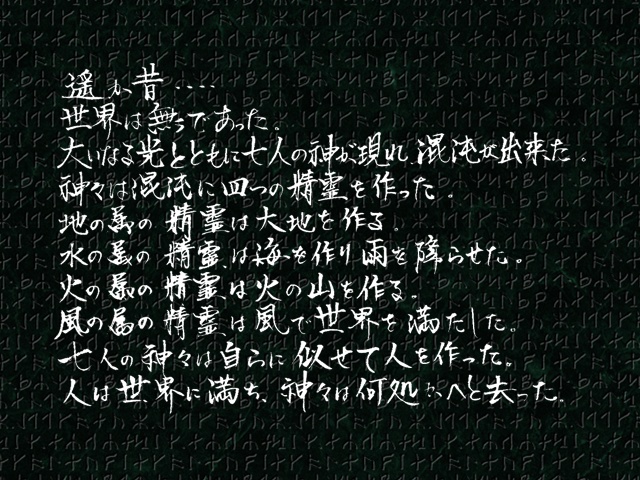 遥か昔‥‥
世界は無っであった。
大いなる光とともに七人の神が現れ、混沌が出来た。
神々は混沌に四つの精霊を作った。
地の属の精霊は大地を作る。
水の属の精霊は海を作り雨を降らせた。
火の属の精霊は火の山を作る。
風の属の精霊は風で世界を満たした。
七人の神々は自らに似せて人を作った。
人は世界に満ち、神々は何処かへと去った。